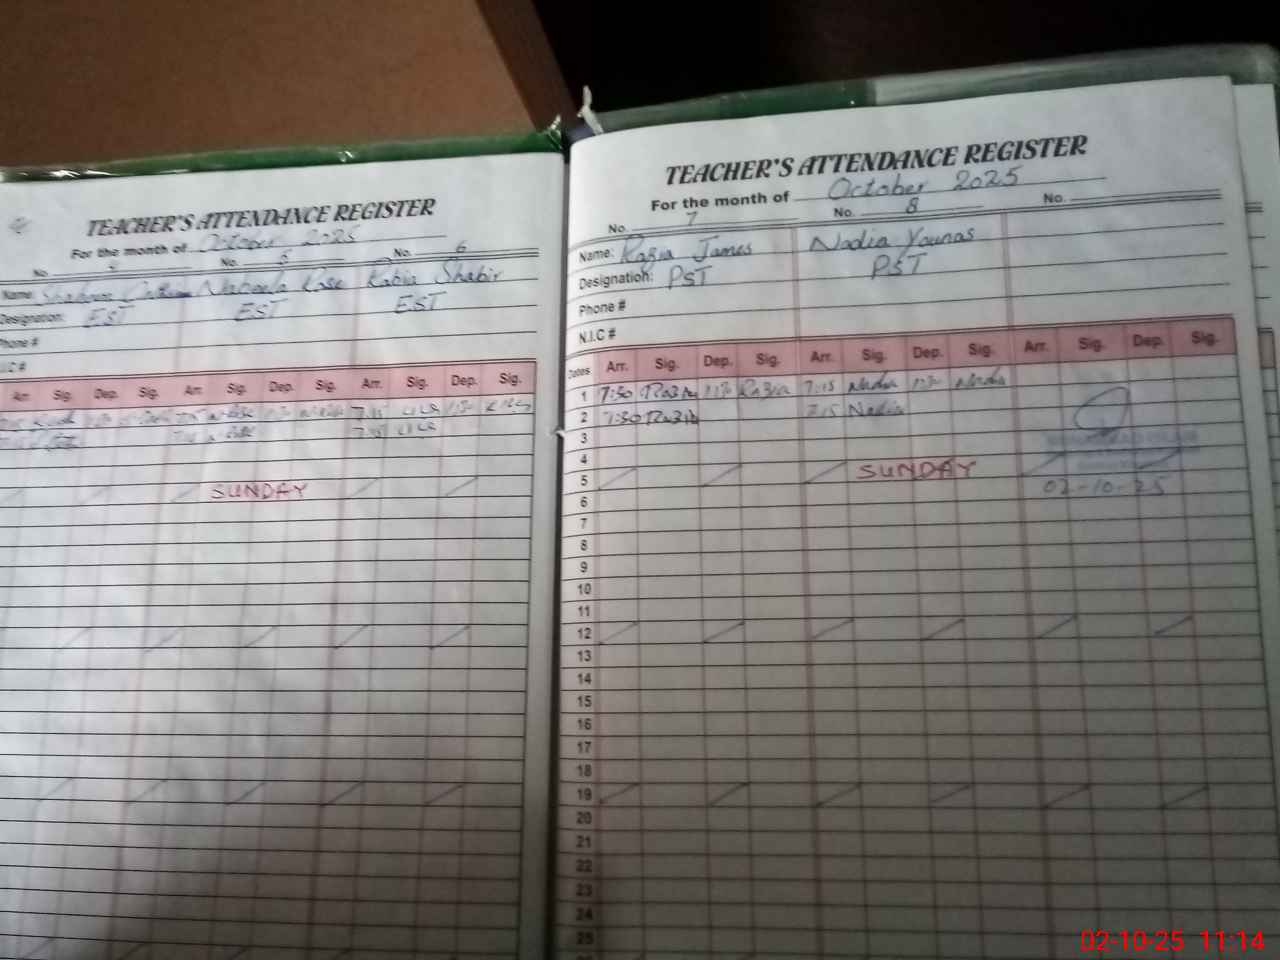 TEACHER'S ATTENDANCE REGISTER
For the month of October 2025
No. No. 5 No. 6
Name: Nabeela Rose Rabia Shabir
Designation: EST EST EST
Phone #
I.C #
Arr. Sig. Dep. Sig. Arr. Sig. Dep. Sig. Arr. Sig. Dep. Sig.
SUNDAY
TEACHER'S ATTENDANCE REGISTER
For the month of October 2025
No. 7 No. 8 No.
Name: Razia James Nadia Younas
Designation: PST PST
Phone #
N.I.C #
Dates Arr. Sig. Dep. Sig. Arr. Sig. Dep. Sig. Arr. Sig. Dep. Sig.
1 7:50 Razia Razia 7:15 Nadia Nadia
2 7:50 Razia 7:15 Nadia
3
4
5 SUNDAY
02-10-25
6
7
8
9
10
11
12
13
14
15
16
17
18
19
20
21
22
23
24
25
02-10-25 11:14